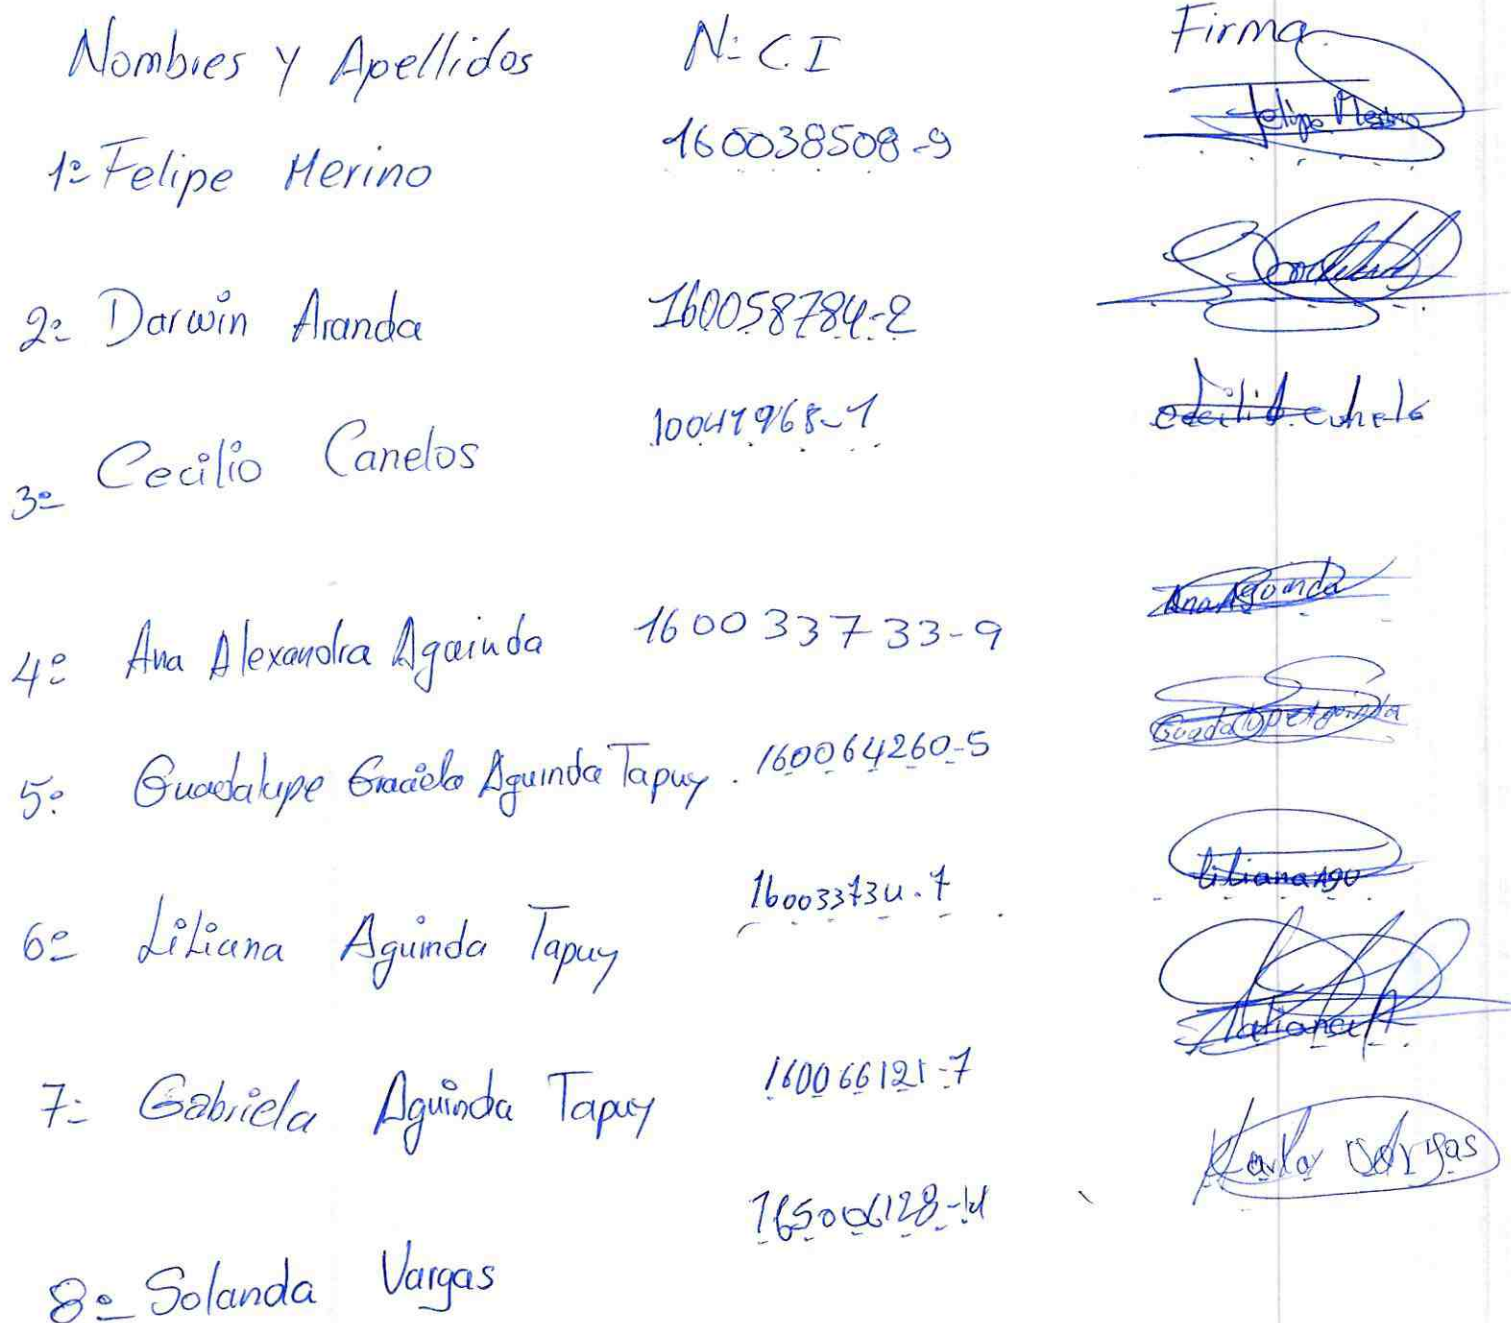 Nombres y Apellidos N: C.I Firma
1º Felipe Merino 160038508-9 Felipe Merino
2º Darwin Aranda 160058784-2
3º Cecilio Canelos 10041968-1
4º Ana Alexandra Aguinda 160033733-9 Ana Aguinda
5º Guadalupe Graciela Aguinda Tapuy. 160064260-5 Guadalupe Aguinda
6º Liliana Aguinda Tapuy 160033734-7 Liliana Agu
7- Gabriela Aguinda Tapuy 160066121-7
8º Solanda Vargas Vargas